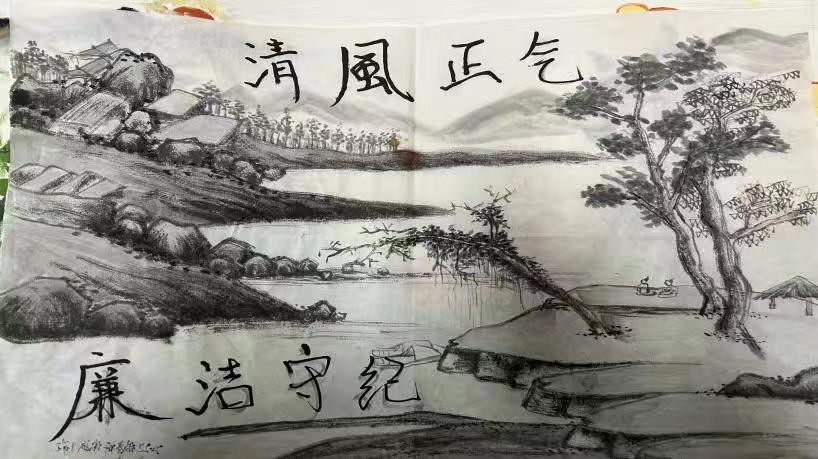 清風正气
廉洁守纪